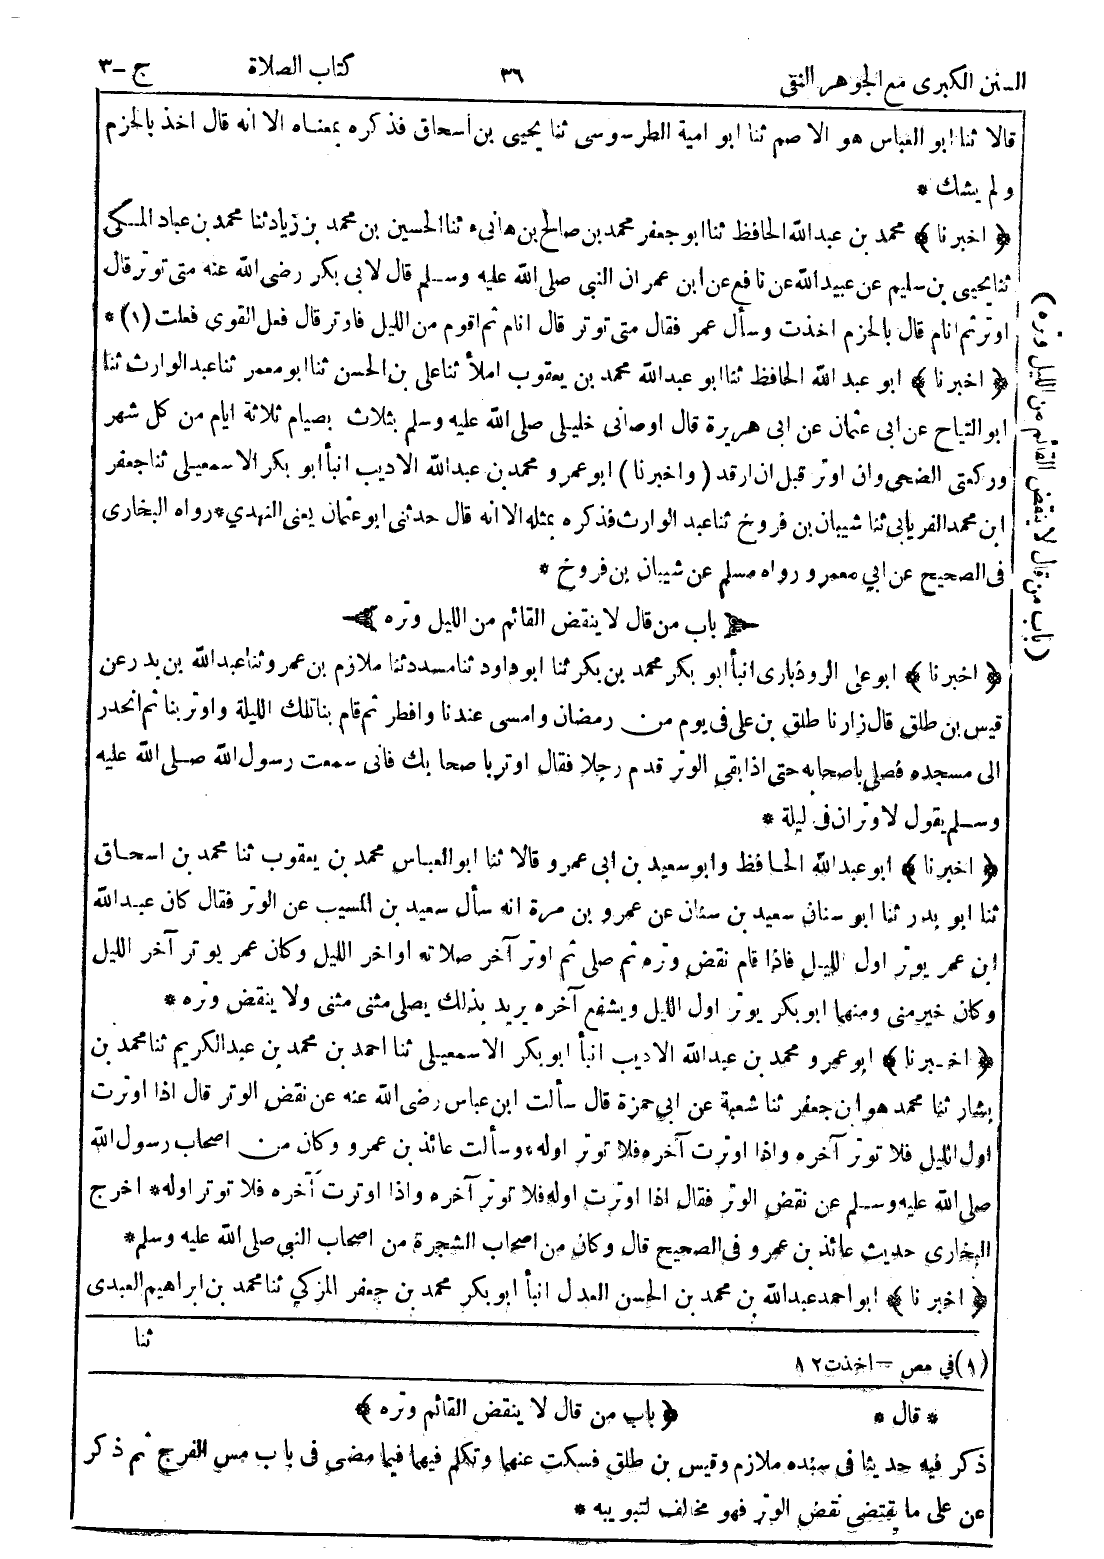 السنن الكبرى مع الجوهر النقى ٣٦ كتاب الصلاة ج-٣
قالا ثنا ابو العباس هو الاصم ثنا ابو امية الطرسوسى ثنا يحيى بن اسحاق فذكره بمعناه الا انه قال اخذ بالحزم
ولم يشك *
﴿ اخبرنا ﴾ محمد بن عبدالله الحافظ ثنا ابو جعفر محمد بن صالح بن هانىء ثنا الحسين بن محمد بن زياد ثنا محمد بن عباد المكى
ثنا يحيى بن سليم عن عبيدالله عن نافع عن ابن عمر ان النبى صلى الله عليه وسلم قال لابى بكر رضى الله عنه متى توتر قال
اوتر ثم انام قال بالحزم اخذت وسأل عمر فقال متى توتر قال انام ثم اقوم من الليل فاوتر قال فعل القوى فعلت (١) *
﴿ اخبرنا ﴾ ابو عبد الله الحافظ ثنا ابو عبد الله محمد بن يعقوب املأ ثنا على بن الحسن ثنا ابو معمر ثنا عبد الوارث ثنا
ابو التياح عن ابى عثمان عن ابى هريرة قال اوصانى خليلى صلى الله عليه وسلم بثلاث بصيام ثلاثة ايام من كل شهر
وركعتى الضحى وان اوتر قبل ان ارقد ( واخبرنا ) ابو عمرو محمد بن عبدالله الاديب انبأ ابو بكر الاسمعيلى ثنا جعفر
ابن محمد الفريابى ثنا شيبان بن فروخ ثنا عبد الوارث فذكره بمثله الا انه قال حدثنى ابو عثمان يعنى النهدى * رواه البخارى
فى الصحيح عن ابي معمر ورواه مسلم عن شيبان بن فروخ *
﴿ باب من قال لا ينقض القائم من الليل وتره ﴾
﴿ اخبرنا ﴾ ابو على الروذبارى انبأ ابو بكر محمد بن بكر ثنا ابو داود ثنا مسدد ثنا ملازم بن عمرو ثنا عبدالله بن بدر عن
قيس بن طلق قال زارنا طلق بن على فى يوم من رمضان وامسى عندنا وافطر ثم قام بنا تلك الليلة واوتر بنا ثم انحدر
الى مسجده فصلى باصحابه حتى اذا بقى الوتر قدم رجلا فقال اوتر باصحابك فانى سمعت رسول الله صلى الله عليه
وسلم يقول لا وتران فى ليلة *
﴿ اخبرنا ﴾ ابو عبدالله الحافظ وابو سعيد بن ابى عمرو قالا ثنا ابو العباس محمد بن يعقوب ثنا محمد بن اسحاق
ثنا ابو بدر ثنا ابو سنان سعيد بن سنان عن عمرو بن مرة انه سأل سعيد بن المسيب عن الوتر فقال كان عبدالله
ابن عمر يوتر اول الليل فاذا قام نقض وتره ثم صلى ثم اوتر آخر صلاته اواخر الليل وكان عمر يوتر آخر الليل
وكان خير منى ومنهما ابو بكر يوتر اول الليل ويشفع آخره يريد بذلك يصلى مثنى مثنى ولا ينقض وتره *
﴿ اخبرنا ﴾ ابو عمرو محمد بن عبدالله الاديب انبأ ابو بكر الاسمعيلى ثنا احمد بن محمد بن عبد الكريم ثنا محمد بن
بشار ثنا محمد هو ابن جعفر ثنا شعبة عن ابي حمزة قال سألت ابن عباس رضى الله عنه عن نقض الوتر قال اذا اوترت
اول الليل فلا توتر آخره واذا اوترت آخره فلا توتر اوله وسألت عائذ بن عمرو وكان من اصحاب رسول الله
صلى الله عليه وسلم عن نقض الوتر فقال اذا اوترت اوله فلا توتر آخره واذا اوترت آخره فلا توتر اوله * اخرج
البخارى حديث عائذ بن عمرو فى الصحيح قال وكان من اصحاب الشجرة من اصحاب النبى صلى الله عليه وسلم *
﴿ اخبرنا ﴾ ابو احمد عبدالله بن محمد بن الحسن العدل انبأ ابو بكر محمد بن جعفر المزكي ثنا محمد بن ابراهيم العبدى
ثنا
(١) في مص - اخذت ١٢
* قال * ﴿ باب من قال لا ينقض القائم وتره ﴾
ذكر فيه حديثا فى سنده ملازم وقيس بن طلق فسكت عنهما وتكلم فيهما فيما مضى فى باب مس الفرج ثم ذكر
عن على ما يقتضى نقض الوتر فهو مخالف لتبويبه *
( باب من قال لا ينقض القائم من الليل وتره )